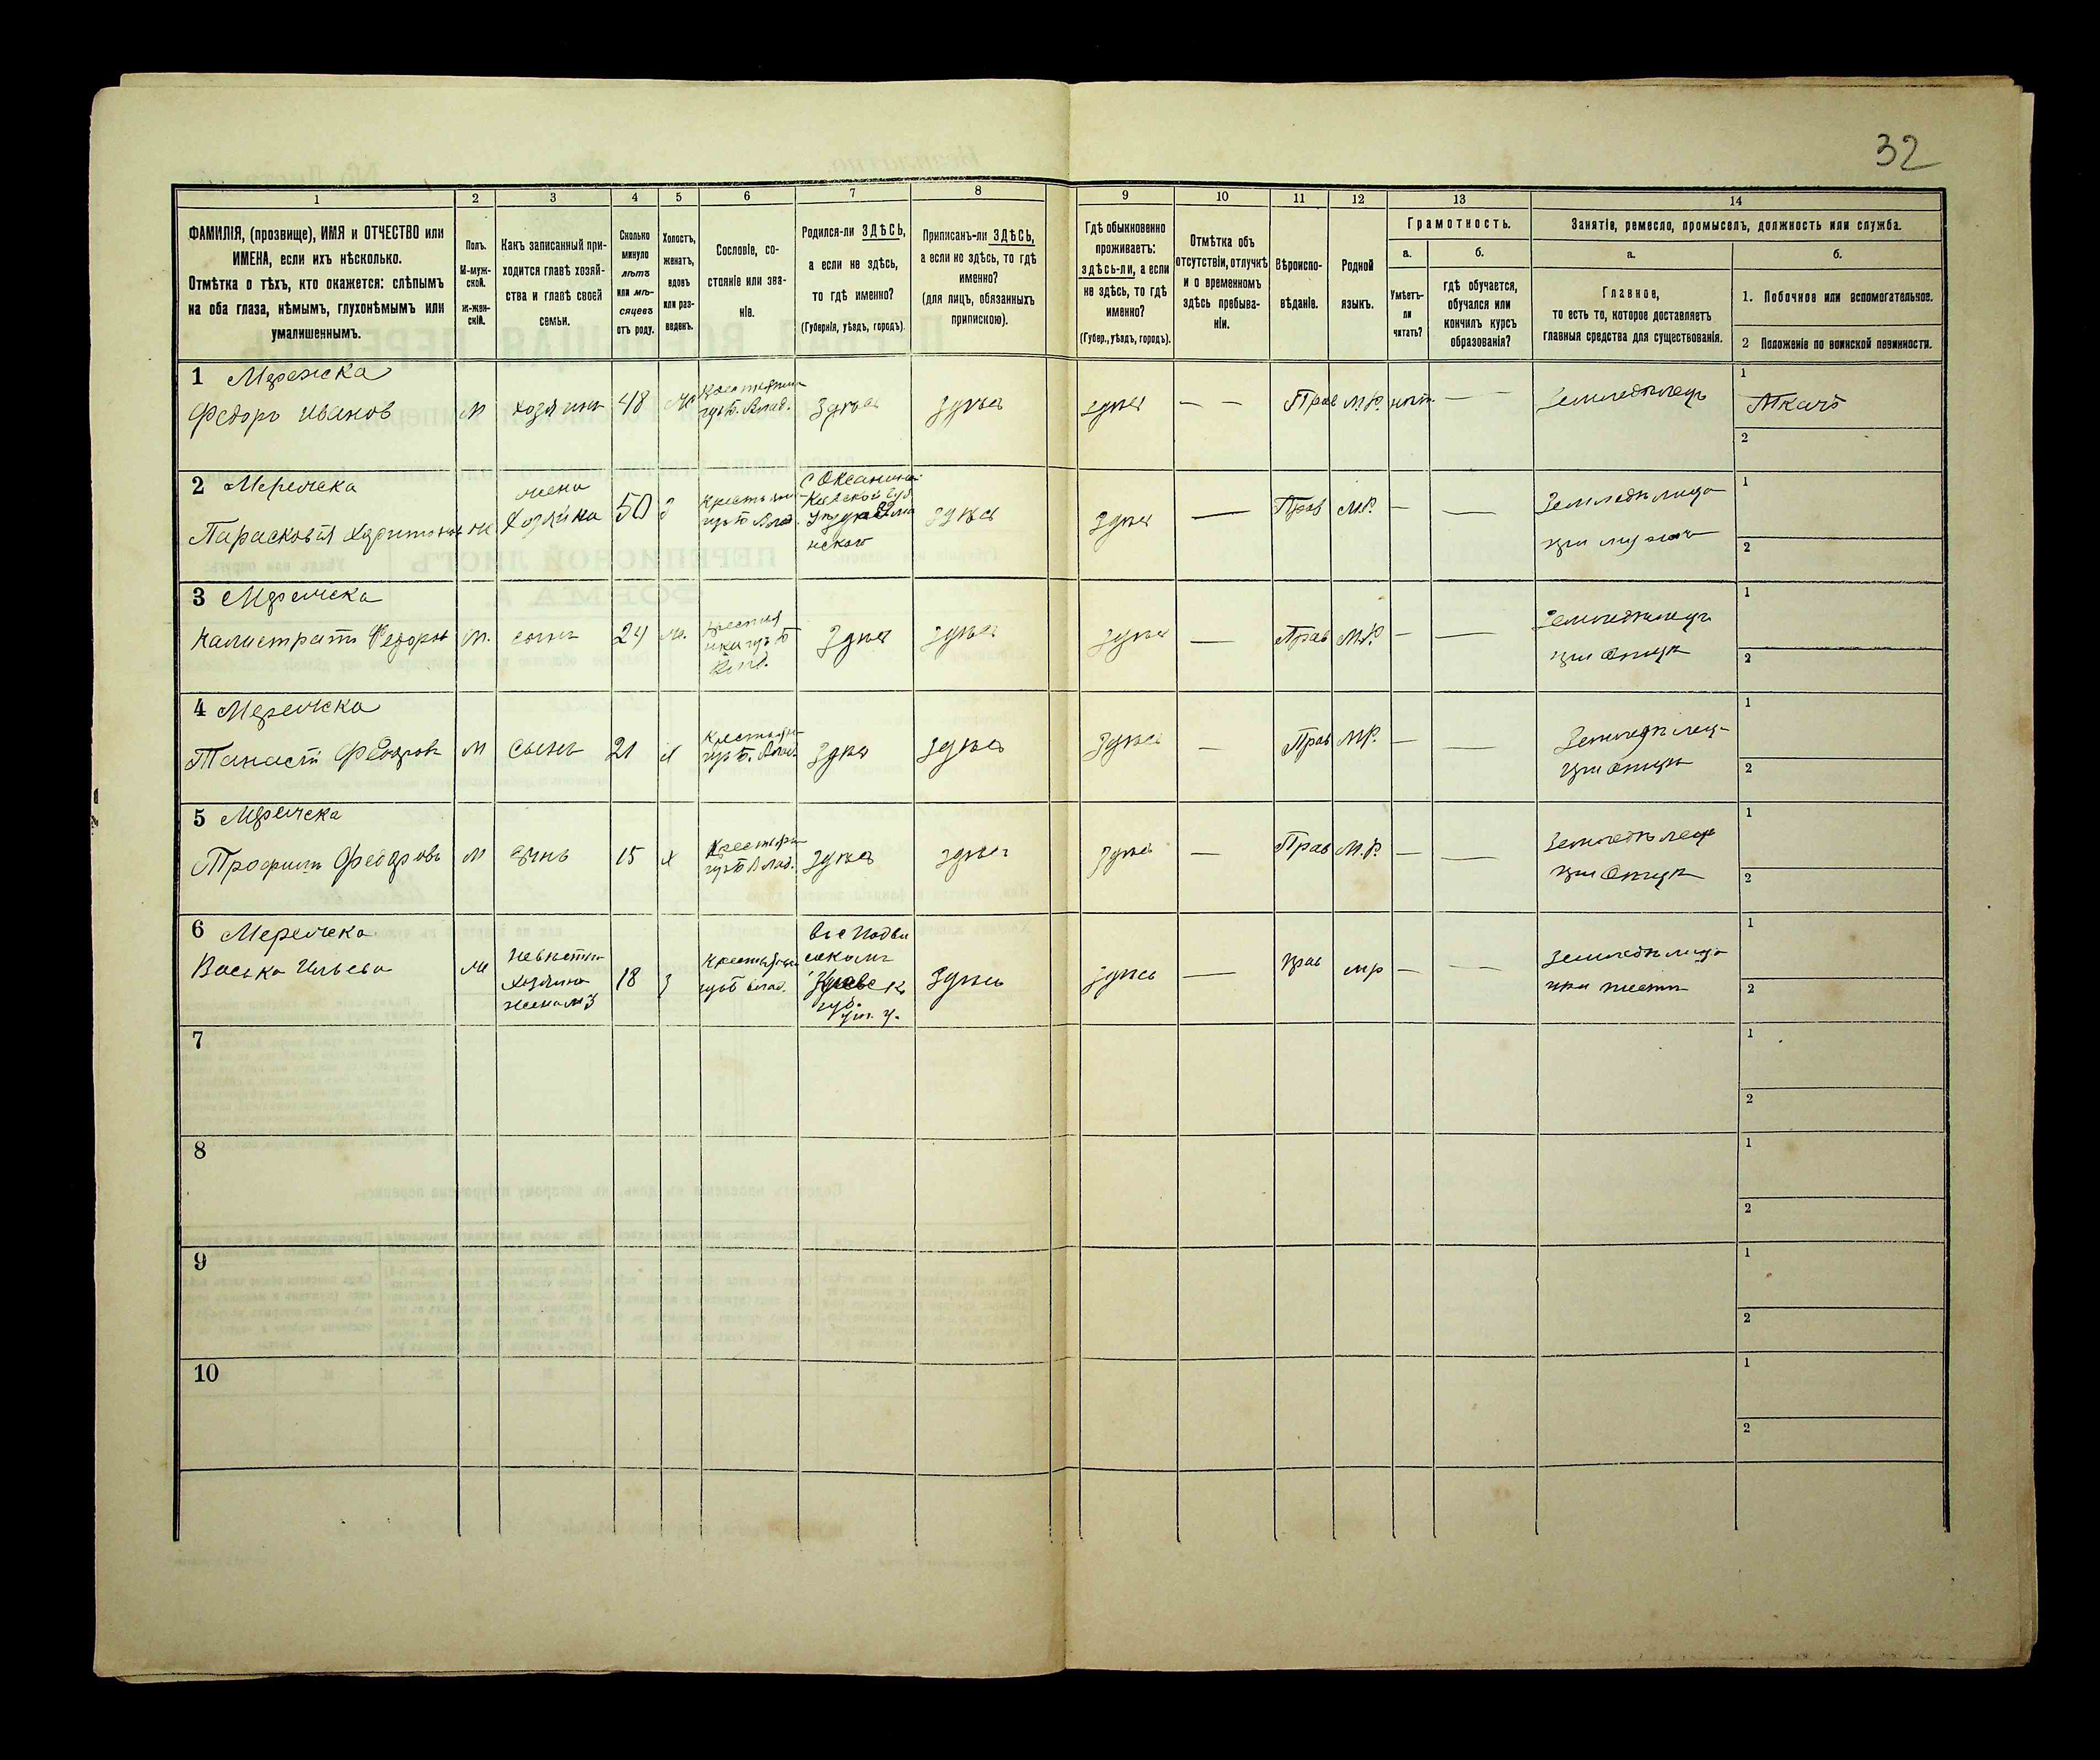 32
1 2 3 4 5 6 7 8 9 10 11 12 13 14
ФАМИЛІЯ, (прозвище), ИМЯ и ОТЧЕСТВО или
ИМЕНА, если ихъ нѣсколько.
Отмѣтка о тѣхъ, кто окажется: слѣпымъ
на оба глаза, нѣмымъ, глухонѣмымъ или
умалишеннымъ.
Полъ.
М-муж-
ской.
ж-жен-
скій.
Какъ записанный при-
ходится главѣ хозяй-
ства и главѣ своей
семьи.
Сколько
минуло
лѣтъ
или мѣ-
сяцевъ
отъ роду.
Холостъ,
женатъ,
вдовъ
или раз-
веденъ.
Сословіе, со-
стояніе или зва-
ніе.
Родился-ли ЗДѢСЬ,
а если не здѣсь,
то гдѣ именно?
(Губернія, уѣздъ, городъ).
Приписанъ-ли ЗДѢСЬ,
а если не здѣсь, то гдѣ
именно?
(для лицъ, обязанныхъ
припискою).
Гдѣ обыкновенно
проживаетъ:
здѣсь-ли, а если
не здѣсь, то гдѣ
именно?
(Губер., уѣздъ, городъ).
Отмѣтка объ
отсутствіи, отлучкѣ
и о временномъ
здѣсь пребыва-
ніи.
Вѣроиспо-
вѣданіе.
Родной
языкъ.
Грамотность.
а.
Умѣетъ-
ли
читать?
б.
гдѣ обучается,
обучался или
кончилъ курсъ
образованія?
Занятіе, ремесло, промыселъ, должность или служба.
а.
Главное,
то есть то, которое доставляетъ
главныя средства для существованія.
б.
1. Побочное или вспомогательное.
2 Положеніе по воинской повинности.
1
Федоръ Иванов М хозяинъ 48 Здѣсь здѣсь здѣсь — — Прав М.Р. нѣт — — Земледѣлецъ
1 Ткачъ
2
2 Мережка
Парасковія Харитонов ж жена
хозяина 50 З здѣсь здѣсь — Прав М.Р. — —
1
2
3 Мережка
Калистратъ Федоров М. сынъ 24 Здѣсь здѣсь здѣсь — Прав М.Р. — — Земледѣлецъ
при отцѣ
1
2
4 Мережка
Танасій Федоров М сынъ 21 здѣсь здѣсь здѣсь — Прав М.Р. — —
при отцѣ
1
2
5 Мережка
Трофим Федоровъ М сынъ 15 х здѣсь здѣсь здѣсь — Прав М.Р. — — Земледѣлец
при отцѣ
1
2
6 Мережка
Васька Ильева невѣстка
хозяина
жена №3 18 З здѣсь здѣсь — Прав мр — —
1
2
7
1
2
8
1
2
9
1
2
10
1
2